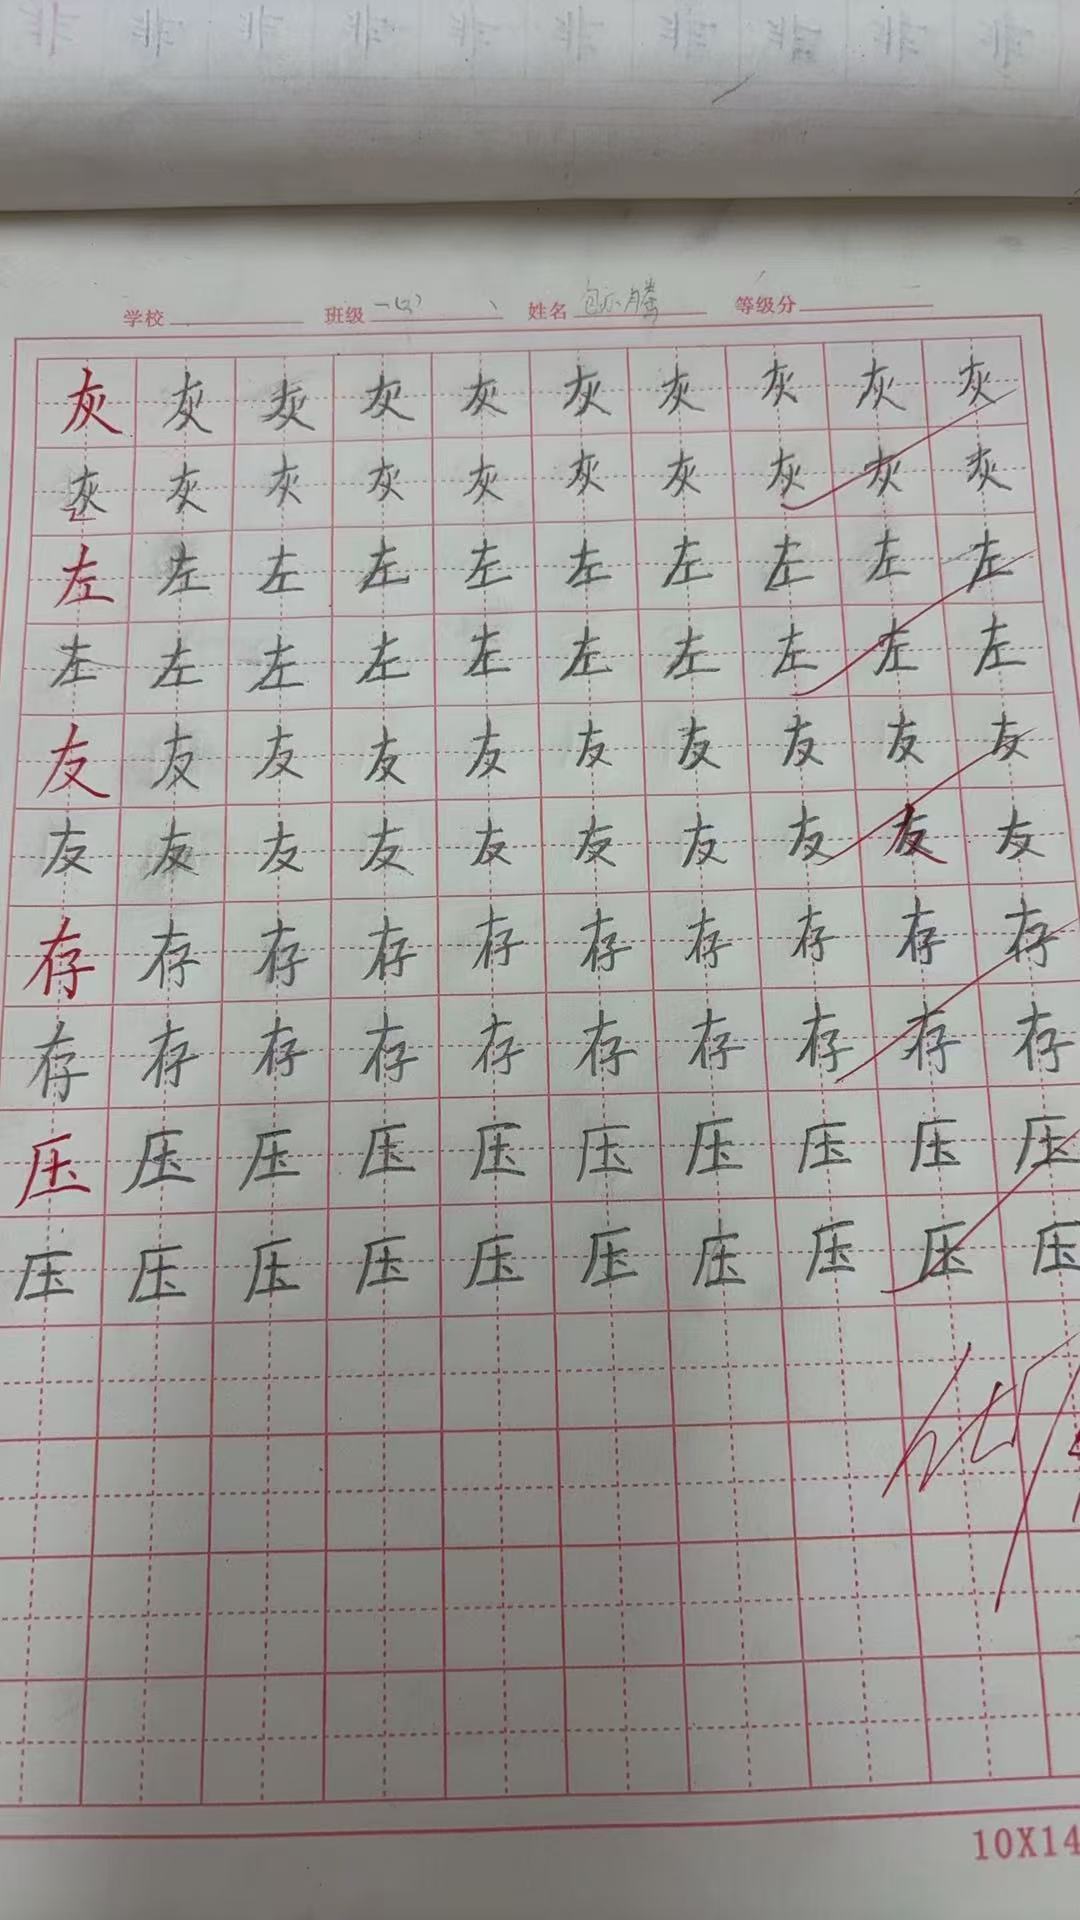 非 非 非 非 非 非 非 非 非 非
学校 班级 一(3) 姓名 等级分
灰 灰 灰 灰 灰 灰 灰 灰 灰 灰
灰 灰 灰 灰 灰 灰 灰 灰 灰 灰
左 左 左 左 左 左 左 左 左 左
左 左 左 左 左 左 左 左 左 左
友 友 友 友 友 友 友 友 友 友
友 友 友 友 友 友 友 友 友 友
存 存 存 存 存 存 存 存 存 存
存 存 存 存 存 存 存 存 存 存
压 压 压 压 压 压 压 压 压 压
压 压 压 压 压 压 压 压 压 压
10X14